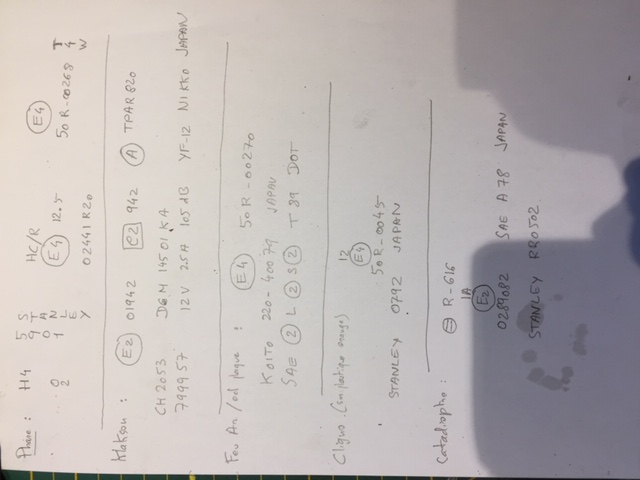 Phare : H4 5 S HC/R E4
0 9 T E4 12.5 50R-00268 T
2 0 A 4
1 N 02441 R20 W
L
E
Y
Klakson : E2 01942 e2 942 A TPAR 820
CH 2053 DGM 14501 KA
799957 12V 2.5A 105 dB YF-12 NIKKO JAPAN
Feu Arr/ecl plaque : E4 50R-00270
KOITO 220-40079 JAPAN
SAE 2 L 2 S 2 T 89 DOT
Cligno. (sur plastique orange)
12 E4
50R-0045
STANLEY 0792 JAPAN
Catadioptre : R-616
IA E2
0289082 SAE A 78 JAPAN
STANLEY RR0502